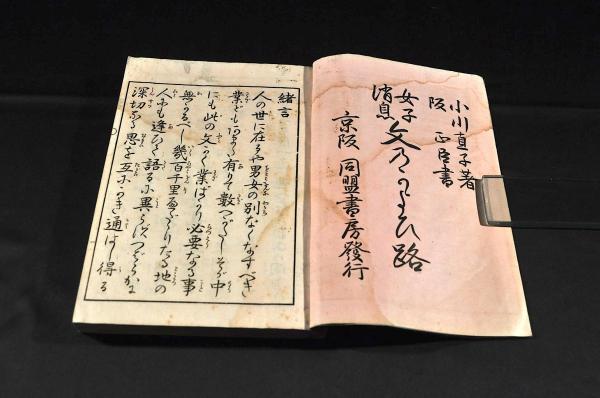 小川直子著
阪正臣書
女子
消息
文乃かよひ路
京阪 同盟書房發行
緒言
人の世に在るや男女の別なくなすべき
業ども 有りて數 そが中
にも此の文かく業ばかり必要なる事
無かるべし幾百千里へだゝりたる地の
人にも逢ひて語るに異ならずつばらかに
深切なる思を互に 通はし得る